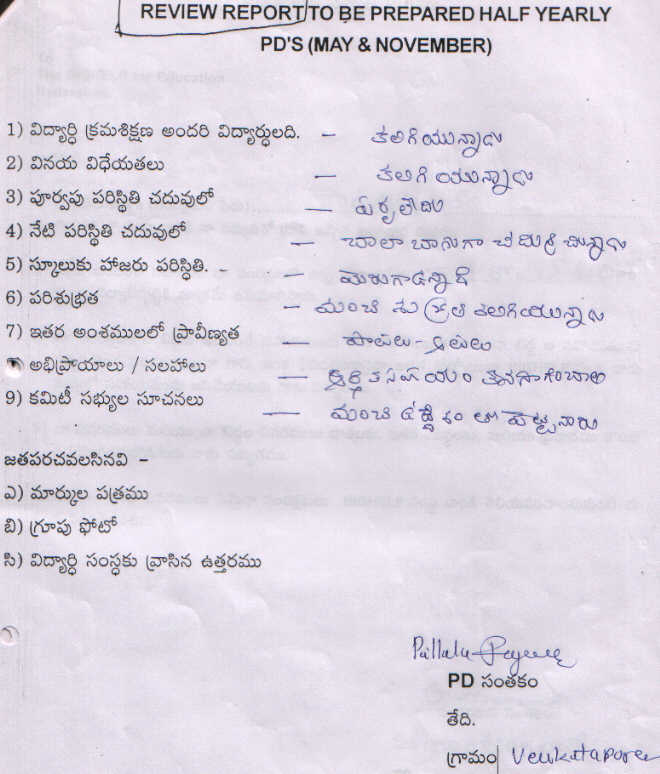 REVIEW REPORT TO BE PREPARED HALF YEARLY
PD'S (MAY & NOVEMBER)
1) విద్యార్థి క్రమశిక్షణ అందరి విద్యార్థులది. - కలిగియున్నాడు
2) వినయ విధేయతలు - కలిగి యున్నాడు
3) పూర్వపు పరిస్థితి చదువులో -
4) నేటి పరిస్థితి చదువులో - చాలా బాగుగా చదువుచున్నాడు
5) స్కూలుకు హాజరు పరిస్థితి.
6) పరిశుభ్రత - మంచి శుభ్రత కలిగియున్నాడు
7) ఇతర అంశములలో ప్రావీణ్యత - పాటలు -
అభిప్రాయాలు / సలహాలు
9) కమిటీ సభ్యుల సూచనలు - మంచి
జతపరచవలసినవి -
ఎ) మార్కుల పత్రము
బి) గ్రూపు ఫోటో
సి) విద్యార్థి సంస్థకు వ్రాసిన ఉత్తరము
PD సంతకం
తేది.
గ్రామం